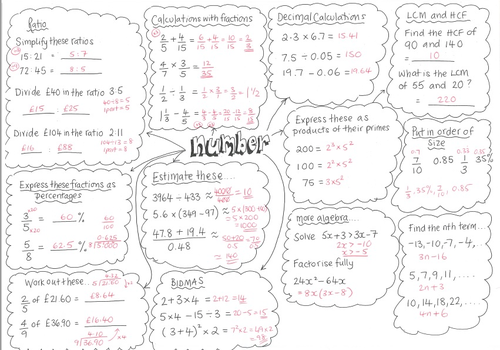 Ratio
Simplify these ratios
15:21 = 5:7
72:45 = 8:5
Divide £40 in the ratio 3:5
£15 : £25
Divide £104 in the ratio 2:11
£16 : £88
104÷13=8
Calculations with fractions
2/5 + 4/15 = 6/15 + 4/15 = 10/15 = 2/3
4/7 × 3/5 = 12/35
1/2 ÷ 1/3
1 1/3 - 4/5
Decimal Calculations
2.3 × 6.7 = 15.41
7.5 ÷ 0.05 = 150
19.7 - 0.06 = 19.64
LCM and HCF
Find the HCF of
90 and 140
10
What is the LCM
of 55 and 20?
220
number
Express these as
products of their primes
200 = 2³×5²
100 = 2²×5²
75 = 3×5²
Put in order of
size
7/10 0.85 1/3 35%
1/3, 35%, 7/10, 0.85
Express these fractions as
percentages
3/5 = 60%
5/8 = 62.5%
Estimate these....
3964 ÷ 433 ≈ 4000/400 = 10
5.6 × (349-97)
≈ 5×200
= 1000
47.8 + 19.4 / 0.48
= 140
more algebra....
Solve 5x+3>3x-7
2x>-10
x>-5
Factorise fully
24x²-64x
= 8x(3x-8)
Find the nth term....
-13, -10, -7, -4, ..
3n-16
5, 7, 9, 11, ....
2n+3
10, 14, 18, 22, ....
4n+6
Work out these...
2/5 of £21.60 = £8.64
4/9 of £36.90 = £16.40
BIDMAS
2+3×4 = 2+12 = 14
5×4-15÷3 = 20-5=15
(3+4)²×2 = 7²×2=49×2
= 98